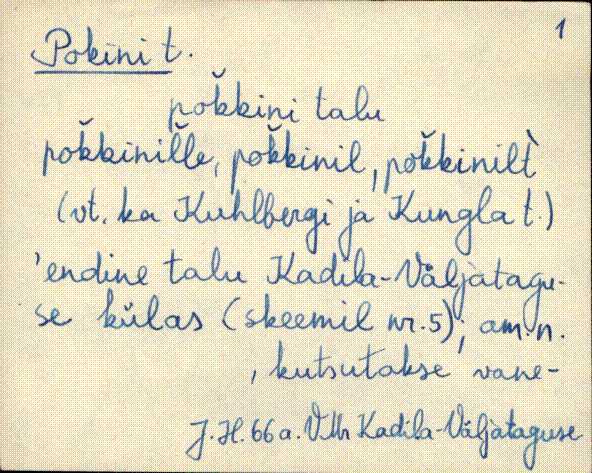 1
Pokini t.
pok̆kini talu
pok̆kinil̆le, pok̆kinil, pok̆kinilt̀
(vt. ka Kuhlbergi ja Kungla t.)
'endine talu Kadila-Väljatagu-
se külas (skeemil nr. 5); am. n.
, kutsutakse vane-
J. H. 66 a. VMr Kadila-Väljataguse